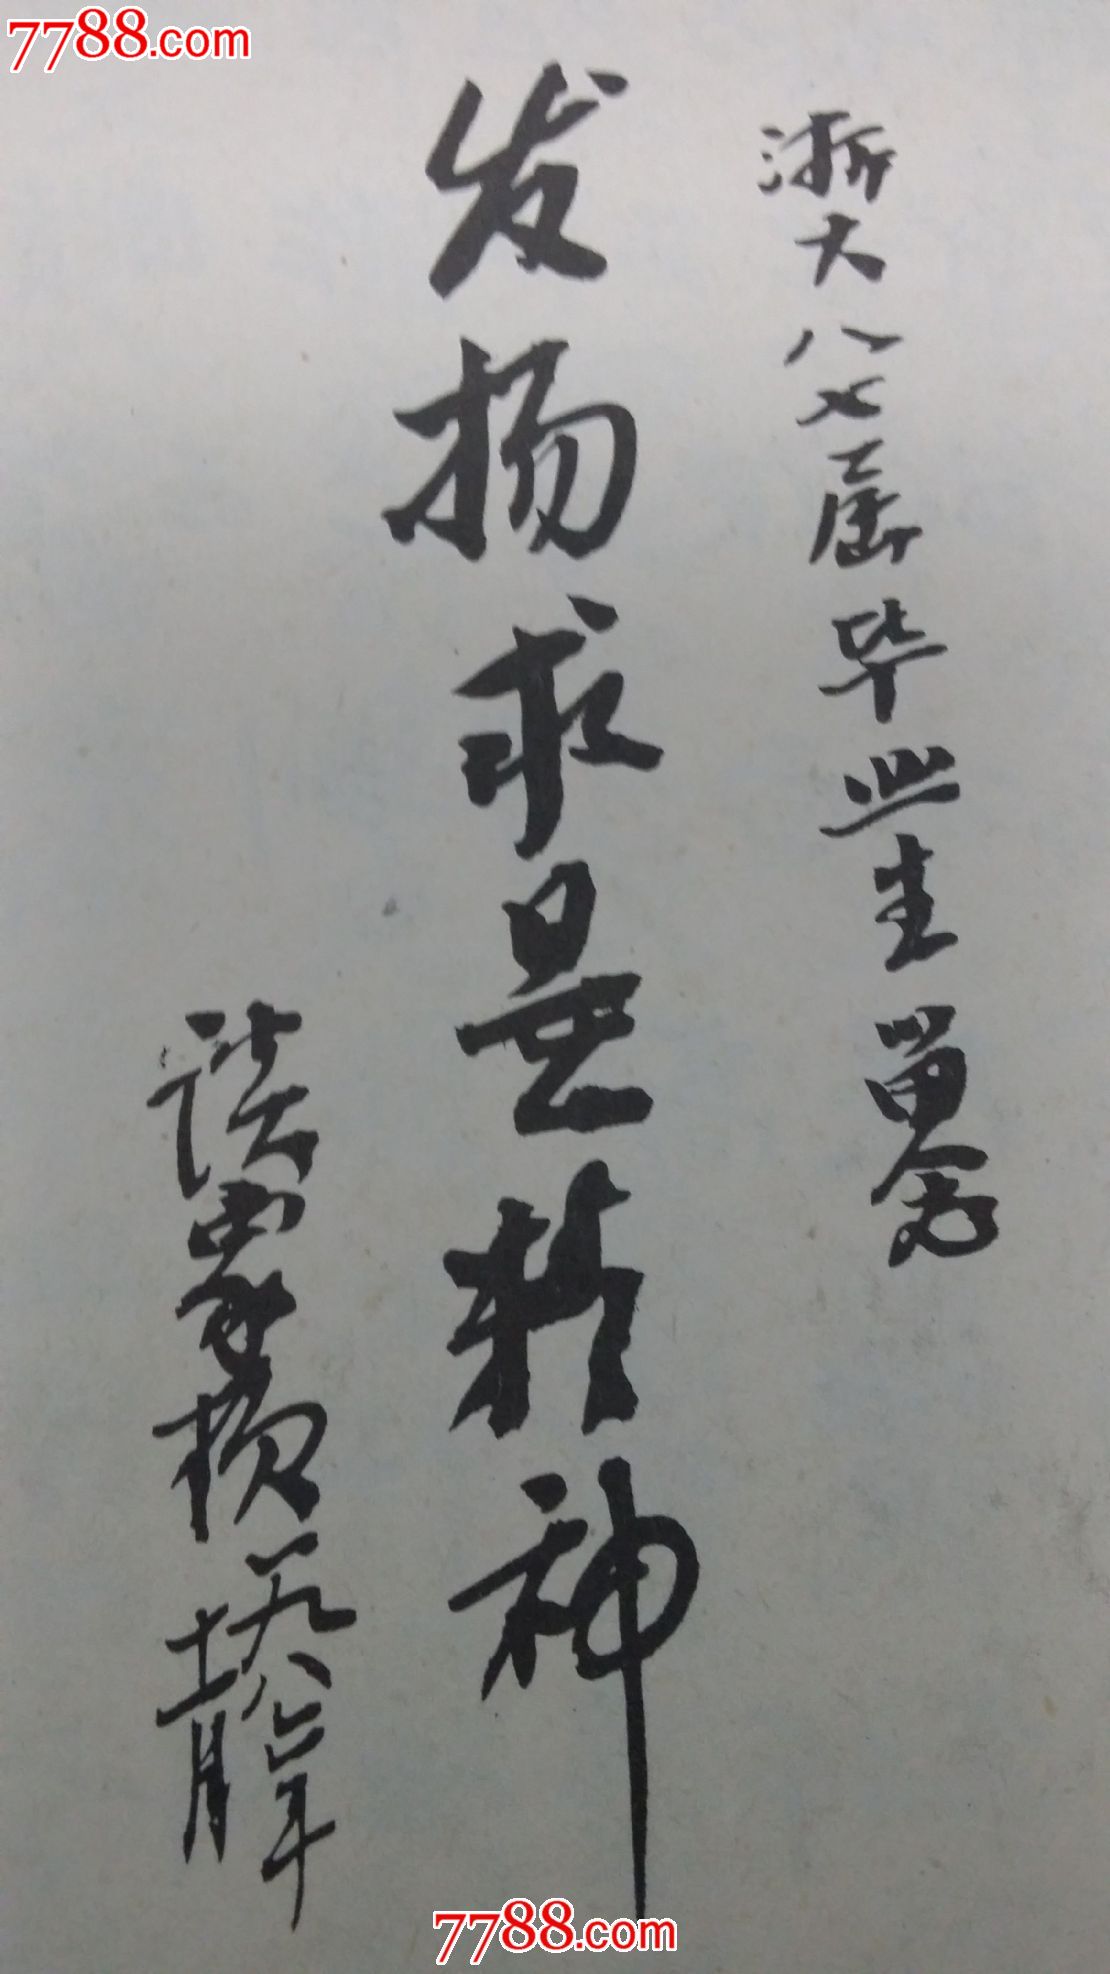 7788.com
浙大八七届毕业生留念
发扬求是精神
谈家桢 一九八六年
十二月
7788.com